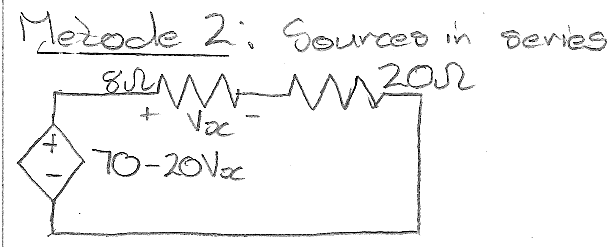 Metode 2: Sources in series
8Ω 20Ω
+ Vx -
+
- 70-20Vx